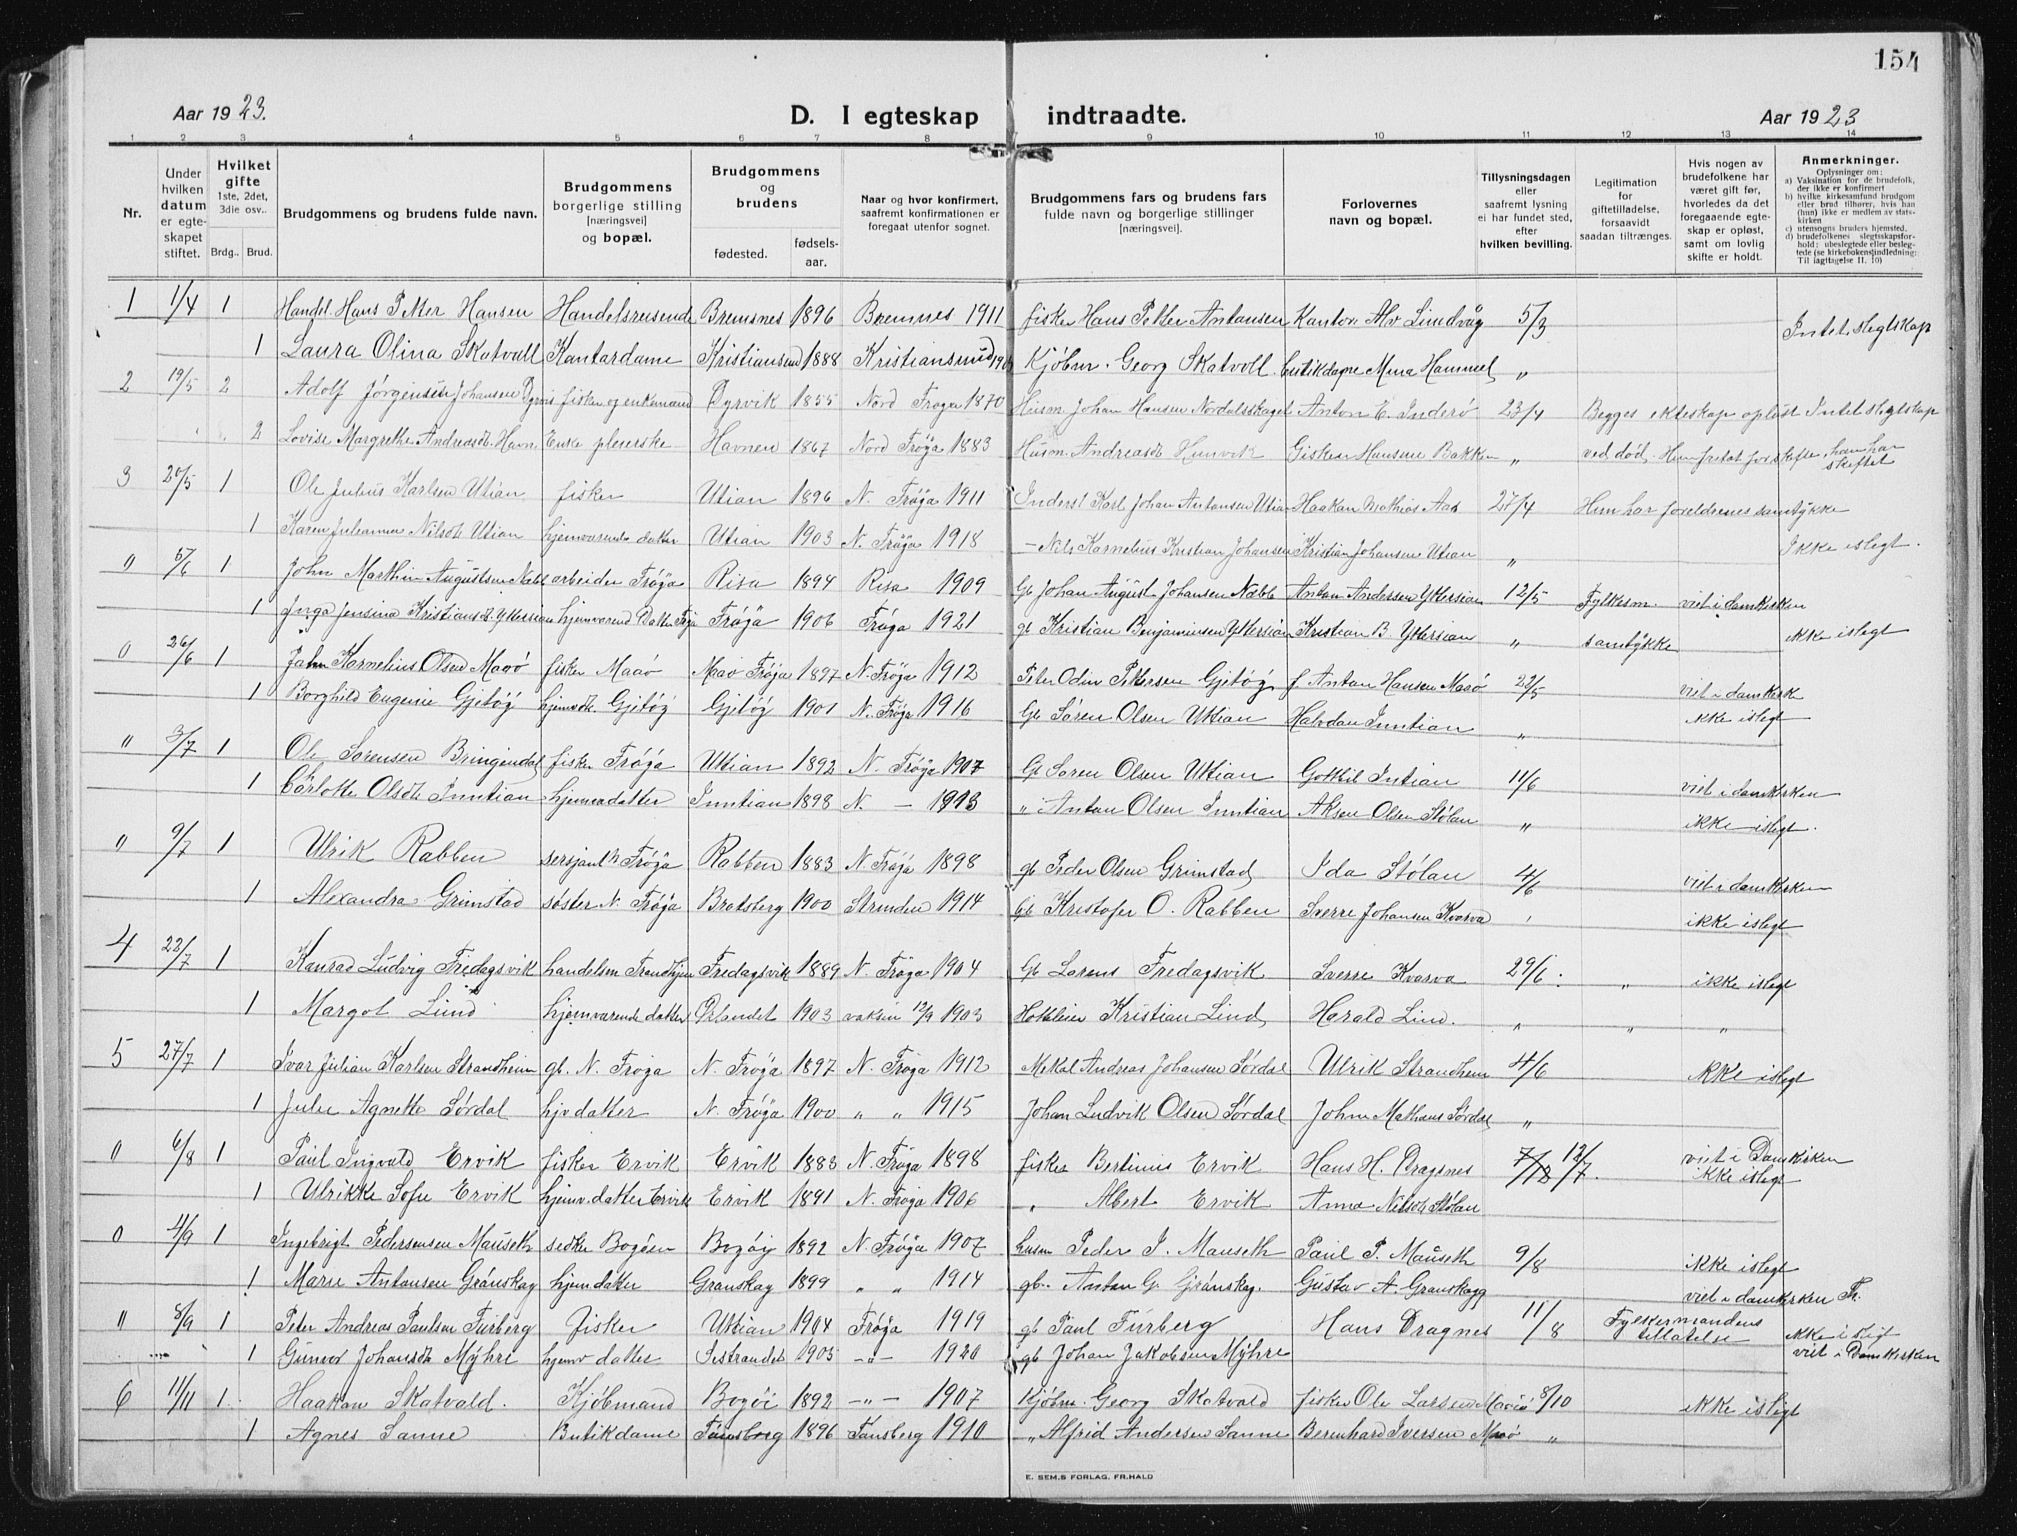 154
Aar 1923. D. I egteskap indtraadte. Aar 1923
1 2 3 4 5 6 7 8 9 10 11 12 13 14
Nr.
Under hvilken datum er egteskapet stiftet.
Hvilket gifte 1ste, 2det, 3die osv.. Brdg.. Brud.
Brudgommens og brudens fulde navn.
Brudgommens borgerlige stilling [næringsvei] og bopæl.
Brudgommens og brudens fødested. fødsels-aar.
Naar og hvor konfirmert, saafremt konfirmationen er foregaat utenfor sognet.
Brudgommens fars og brudens fars fulde navn og borgerlige stillinger [næringsvei].
Forlovernes navn og bopæl.
Tillysningsdagen eller saafremt lysning ei har fundet sted, efter hvilken bevilling.
Legitimation for giftetilladelse, forsaavidt saadan tiltrænges.
Hvis nogen av brudefolkene har været gift før, hvorledes da det foregaaende egteskap er opløst, samt om lovlig skifte er holdt.
Anmerkninger. Oplysninger om: a) Vaksination for de brudefolk, der ikke er konfirmert b) hvilke kirkesamfund brudgom eller brud tilhører, hvis han (hun) ikke er medlem av statskirken c) utensogns bruders hjemsted. d) brudefolkenes slegtsskapsforhold: ubeslegtede eller beslegtede (se kirkebokens indledning: Til iagttagelse II. 10)
1 1/4 1 Handel. Hans Petter Hansen Handelsreisende Bremsnes 1896 Bremnes 1911 fisker Hans Petter Antonsen Kantor Alv Lindvåg 5/3 Intet slegtskap
1 Laura Olina Skatvall Kantordame Kristiansund 1888 Kristiansund Kjøbm. Georg Skatvoll butikdame Mina Hammel "
2 19/5 2 Adolf Jørgensen Johansen fisker og enkemand Dyrvik 1855 Nord Frøya 1870 Husm Johan Hansen Nordalsskaget Anton E. Inderö 23/4 Begges ekteskap opløst Intet slegtskap
2 Lovise Margrethe Andreasdt. Havn. Enke pleierske Havnen 1867 Nord Frøya 1883 Husm. Andreas Gisken Hansen Bakken " ved død. Hun fritat for skifte, han har skiftet
3 20/5 1 Ole Julius Karlsen Utian fisker Utian 1896 N. Frøya 1911 Inderst Karl Johan Antonsen Utian Haakan Mathias Aas 27/4 Hun har foreldrenes samtykke
1 Karen Julianna Nilsdt Utian hjemværende datter Utian 1903 N. Frøya 1918 - Nils Kornelius Kristian Johansen Kristian Johansen Utian " Ikke i slegt.
0 5/6 1 John Marthin Augustsen Næbb arbeider Frøya Risa 1894 Risa 1909 Gb Johan August Johansen Næbb Anton Andersen Yttersian 12/5 Fylkesm. viet i domkirken
1 Inga Jensina Kristiansdt. Yttersian hjemværend Datter Frøya 1906 Frøya 1921 gb Kristian Benjaminsen Yttersian Kristian B. Yttersian " samtykke ikke i slegt
0 26/6 1 John Kornelius Olsen Maaö fisker Maaö Maaö Frøya 1897 N. Frøya 1912 Peter Odin Pettersen Gjetøy f Anton Hansen Masö 22/5 viet i domkirk
1 Borghild Eugenie Gjetöy hjemvdt. Gjetöy Gjetöy 1901 N. Frøya 1916 Gb Søren Olsen Uttian Halvdan Inntian " ikke i slegt
" 3/7 1 Ole Sørensen Bringendal fisker Frøya Uttian 1892 N. Frøya 1907 Gb Søren Olsen Uttian Gottlil Intian 11/6 viet i domkirken
1 Carlotte Olsdt Inntian hjemv datter Inntian 1898 N. - 1913 " Anton Olsen Inntian Aksen Olsen Stölan " ikke i slegt.
" 9/7 1 Ulrik Rabben sersjant N Frøya Rabben 1883 N. Frøya 1898 gb Peder Olsen Grimstad Ida Stölan 4/6 viet i domkirken
1 Alexandra Grimstad søster N. Frøya Bratsberg 1900 Strinden 1914 Gb Kristofer O. Rabben Sverre Johansen Kvarva ikke i slegt
4 22/7 1 Konrad Ludvig Fredagsvik handelsm Trondhjem Fredagsvik 1889 N. Frøya 1904 Gb Lorens Fredagsvik Sverre Kvarva 29/6. " ikke i slegt
1 Margot Lund hjemværende datter Ørlandet 1903 vaksin 12/9 1903 Hotteleier Kristian Lind Harald Lind. " " "
5 27/7 1 Ivar Julian Karlsen Strandheim gb. N. Frøya N. Frøya 1897 N. Frøya 1912 Mekal Andreas Johansen Sördal Ulrik Strandhem 4/6 ikke i slegt
1 Julie Agnette Sördal hjv datter N. Frøya 1900 " " 1915 Johan Ludvik Olsen Sördal John Mathæus Sördal "
0 6/8 1 Paul Ingvald Ervik fisker Ervik Ervik 1883 N. Frøya 1898 fisker Bertinus Ervik Hans H. Dragsnes 12/7. viet i Domkirken ikke i slegt
1 Ulrikke Sofie Ervik hjemv. datter Ervik Ervik 1891 N. Frøya 1906 " Albert Ervik Anna Nilsdt Stölan
0 4/9 1 Ingebrigt Pedersensen Mauseth Bogöen Bogöy 1892 N. Frøya 1907 husm Peder J. Mauseth Paul P. Mauseth 9/8 ikke i slegt
1 Marie Antonsen Grönskag hjemdatter Granskag 1899 " " 1914 gb. Anton G. Grönskag. Gustav A. Granskagg viet i domkirken Tr.
" 8/9 1 Peter Andreas Paulsen Furberg fisker Uttian 1904 Frøya 1919 gb Paul Furberg Hans Dragnes 11/8 Fylkesmandens tillatelse ikke i slegt
1 Gunvor Johansdt Myhre hjemv datter Sistrandet 1905 -"- 1920 gb Johan Jakobsen Myhre viet i Domkirken
6 11/11 1. Haakon Skatvald. Kjøbmand Bogöi 1892 -"- 1907 Kjøbm. Georg Skatvald fisker Ole Larsen 8/10 ikke i slegt
1 Agnes Sanne Butikdame Tönsberg 1896 Tønsberg 1910 " Alfrid Andersen Sanne Bernhard Iversen Maaö "
E. SEM.S FORLAG. FR.HALD